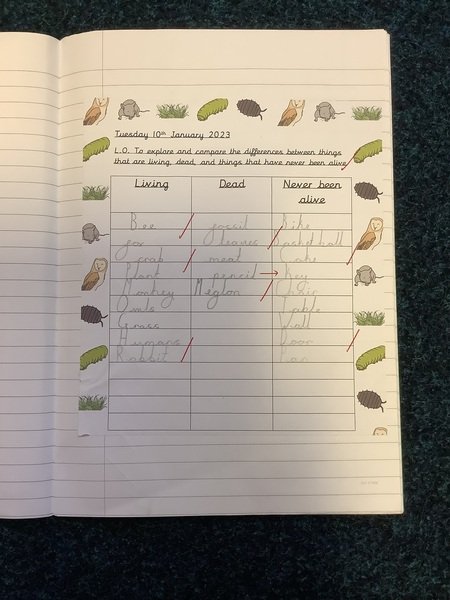 Tuesday 10th January 2023
L.O. To explore and compare the differences between things
that are living, dead, and things that have never been alive
Living Dead Never been
alive
Bee fossil Bike
fox leaves basketball
crab meat Cake
Plant pencil → Key
Monkey Meglon Chair
Owls Table
Grass Wall
Humans Door
Rabbit